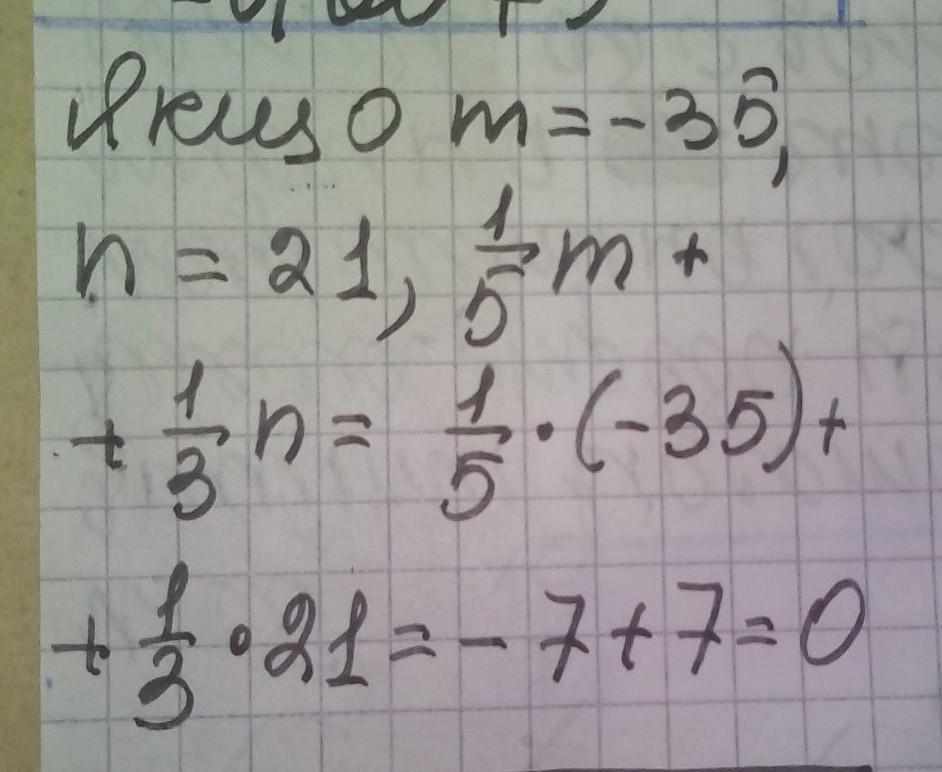 Якщо m = -35,
n = 21, 1/5 m +
+ 1/3 n = 1/5 · (-35) +
+ 1/3 · 21 = - 7 + 7 = 0